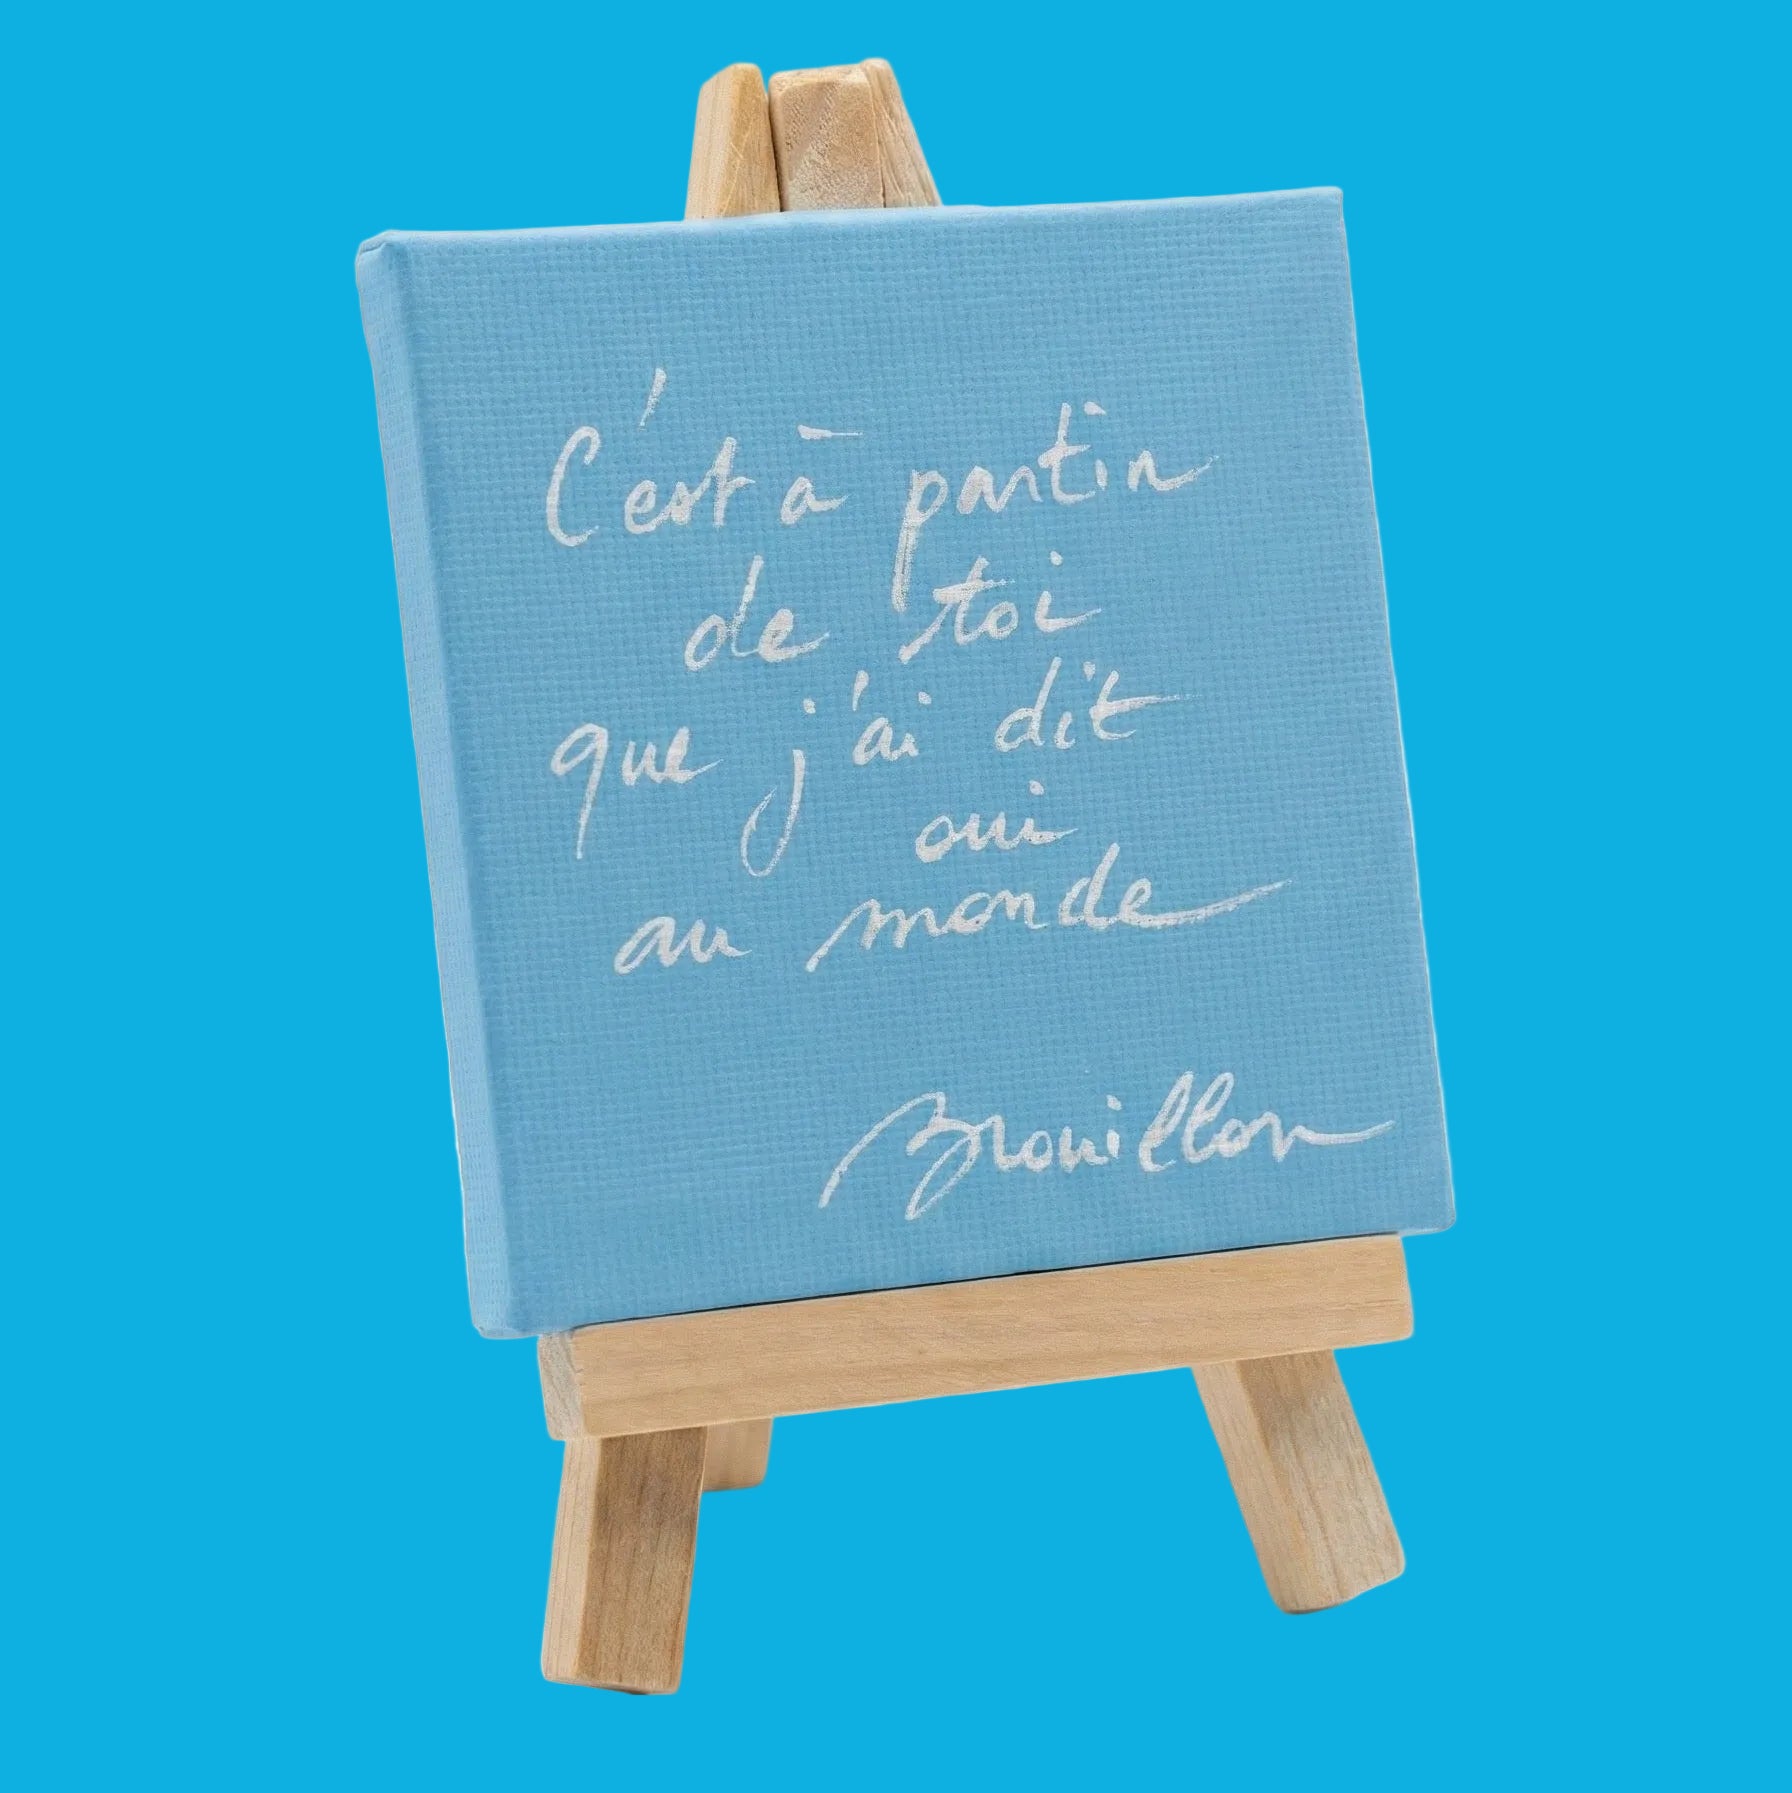 C'est à partir
de toi
que j'ai dit
oui
au monde
Brouillon